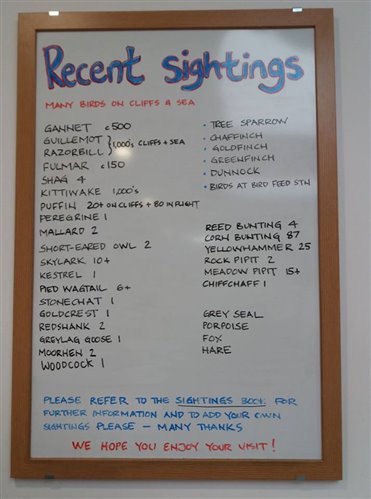 Recent sightings
MANY BIRDS ON CLIFFS & SEA
GANNET c500
GUILLEMOT
RAZORBILL } 1,000's CLIFFS + SEA
FULMAR c150
SHAG 4
KITTIWAKE 1,000's
PUFFIN 20+ ON CLIFFS + 80 IN FLIGHT
PEREGRINE 1
MALLARD 2
SHORT-EARED OWL 2
SKYLARK 10+
KESTREL 1
PIED WAGTAIL 6+
STONECHAT 1
GOLDCREST 1
REDSHANK 2
GREYLAG GOOSE 1
MOORHEN 2
WOODCOCK 1
• TREE SPARROW
• CHAFFINCH
• GOLDFINCH
• GREENFINCH
• DUNNOCK
• BIRDS AT BIRD FEED STN
REED BUNTING 4
CORN BUNTING 87
YELLOWHAMMER 25
ROCK PIPIT 2
MEADOW PIPIT 15+
CHIFFCHAFF 1
GREY SEAL
PORPOISE
FOX
HARE
PLEASE REFER TO THE SIGHTINGS BOOK FOR
FURTHER INFORMATION AND TO ADD YOUR OWN
SIGHTINGS PLEASE - MANY THANKS
WE HOPE YOU ENJOY YOUR VISIT!